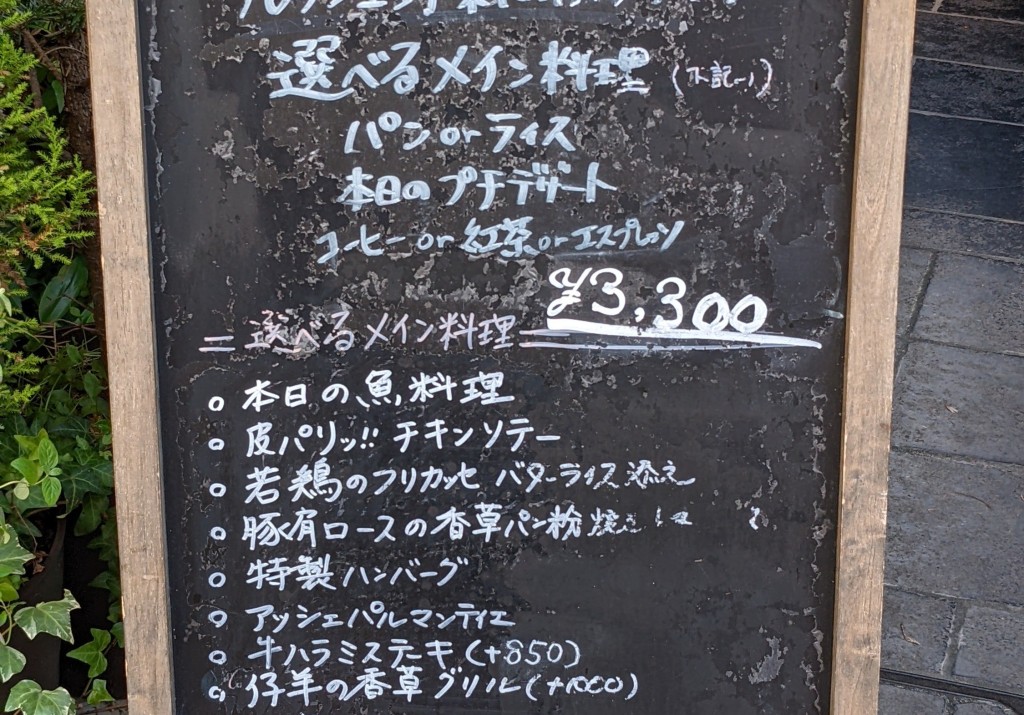 選べるメイン料理(下記〜)
パンorライス
本日のプチデザート
コーヒーor紅茶orエスプレッソ
¥3,300
=選べるメイン料理=
○ 本日の魚料理
○ 皮パリッ!! チキンソテー
○ 若鶏のフリカッセ バターライス添え
○ 豚肩ロースの香草パン粉焼き
○ 特製ハンバーグ
○ アッシェパルマンティエ
○ 牛ハラミステーキ(+850)
○ 仔羊の香草グリル(+1000)